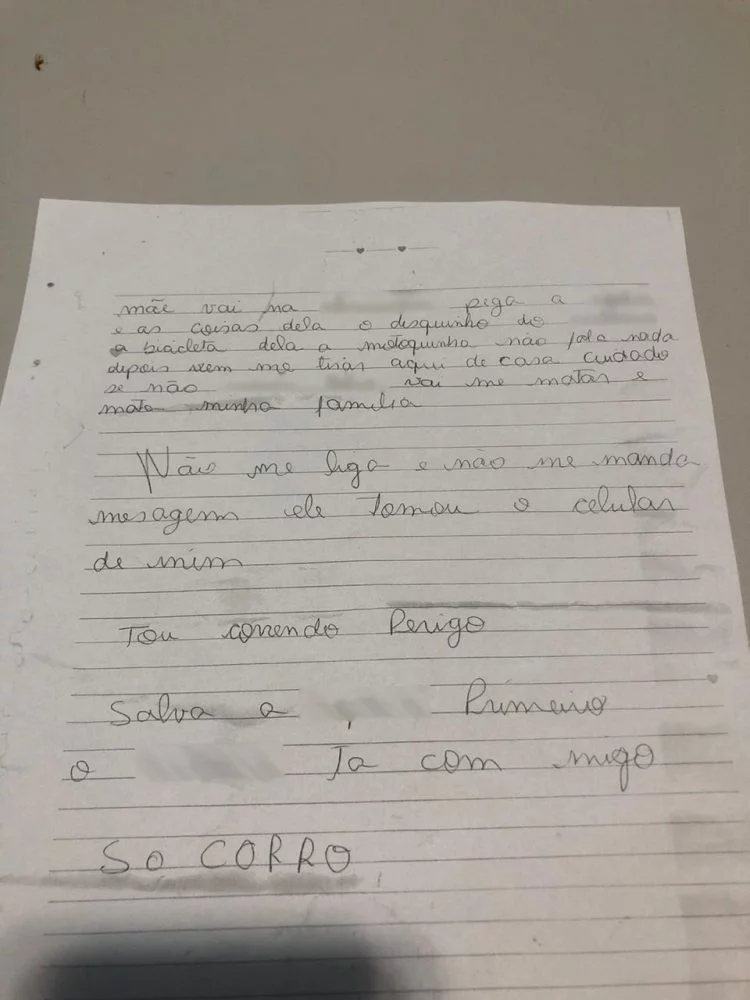 mãe vai na pega a
e as coisas dela o disquinho do
a bicicleta dela a motoquinha não fala nada
depois vem me tirar aqui de casa cuidado
se não vai me matar e
mata minha familia
Não me liga e não me manda
mesagem ele tomou o celular
de mim
Tou correndo Perigo
Salva a , Primeiro
o Ta com migo
So CORRO